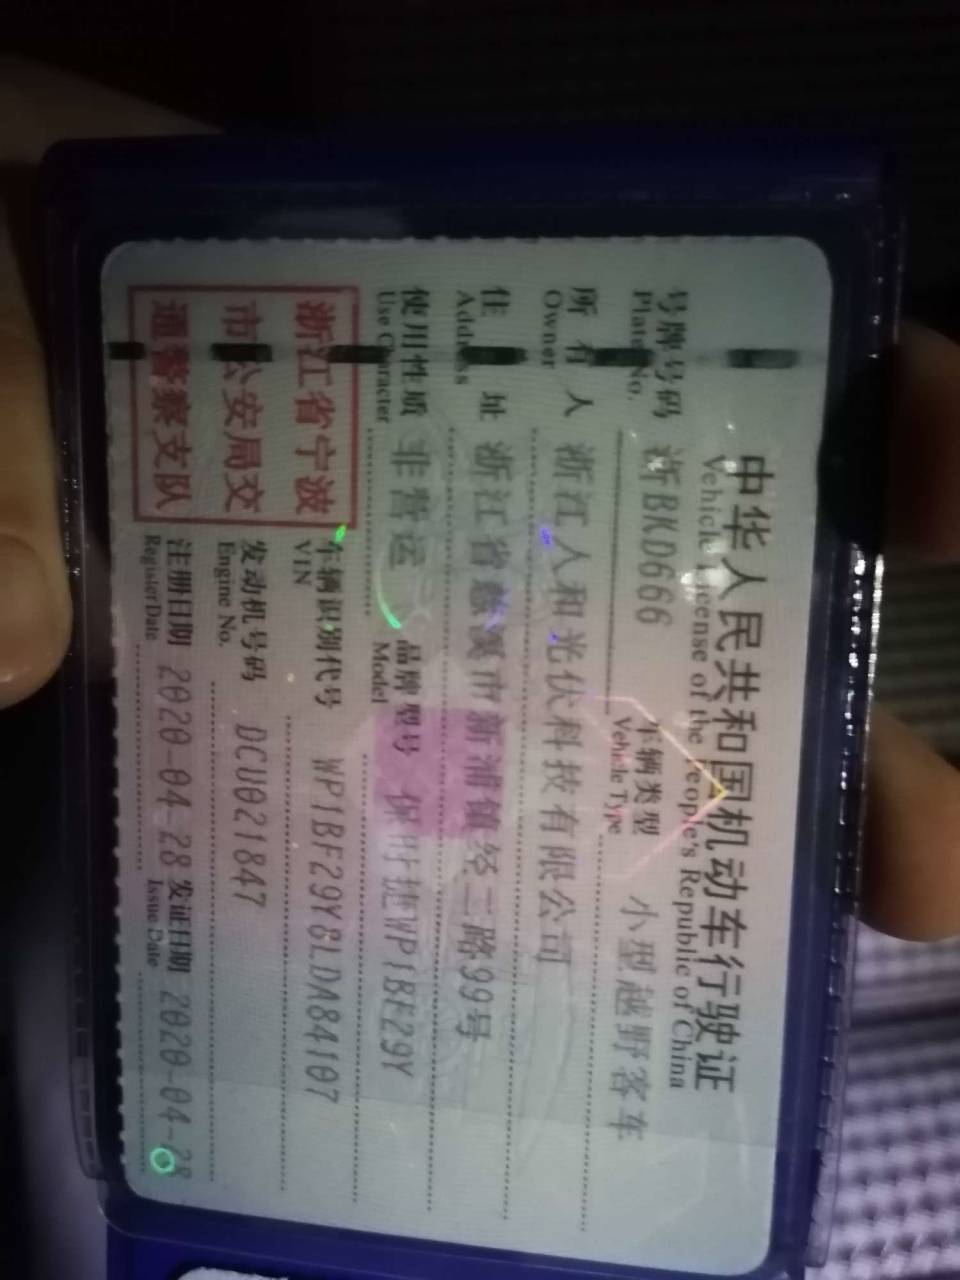 中华人民共和国机动车行驶证
Vehicle License of the People's Republic of China
号牌号码 浙BKD666 车辆类型 小型越野客车
Plate No. Vehicle Type
所有人 浙江人和光伏科技有限公司
Owner
住址 浙江省慈溪市新浦镇经三路99号
Address
使用性质 非营运 品牌型号 保时捷WP1BF29Y
Use Character Model
浙江省宁波
市公安局交
通警察支队
车辆识别代号 WP1BF29Y8LDA84107
VIN
发动机号码 DCU021847
Engine No.
注册日期 2020-04-28 发证日期 2020-04-28
Register Date Issue Date